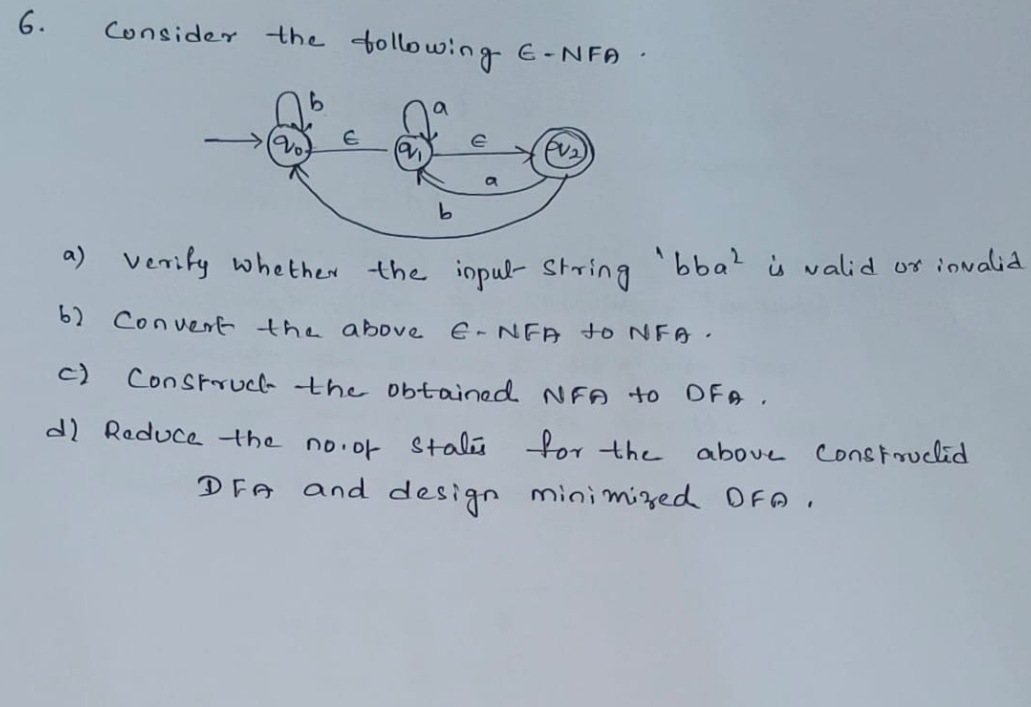 6. Consider the following ε-NFA.
b a
q0 ε q1 ε q2
a
b
a) Verify whether the input string 'bba' is valid or invalid
b) Convert the above ε-NFA to NFA.
c) Construct the obtained NFA to DFA.
d) Reduce the no.of states for the above constructed
DFA and design minimized DFA.